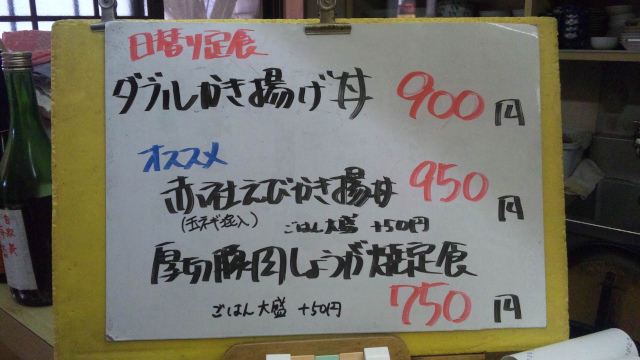 日替り定食
ダブルかき揚げ丼 900円
オススメ
赤社えびかき揚丼 950円
(玉ネギ入) ごはん大盛 +50円
厚切豚肉しょうが焼定食
ごはん大盛 +50円 750円